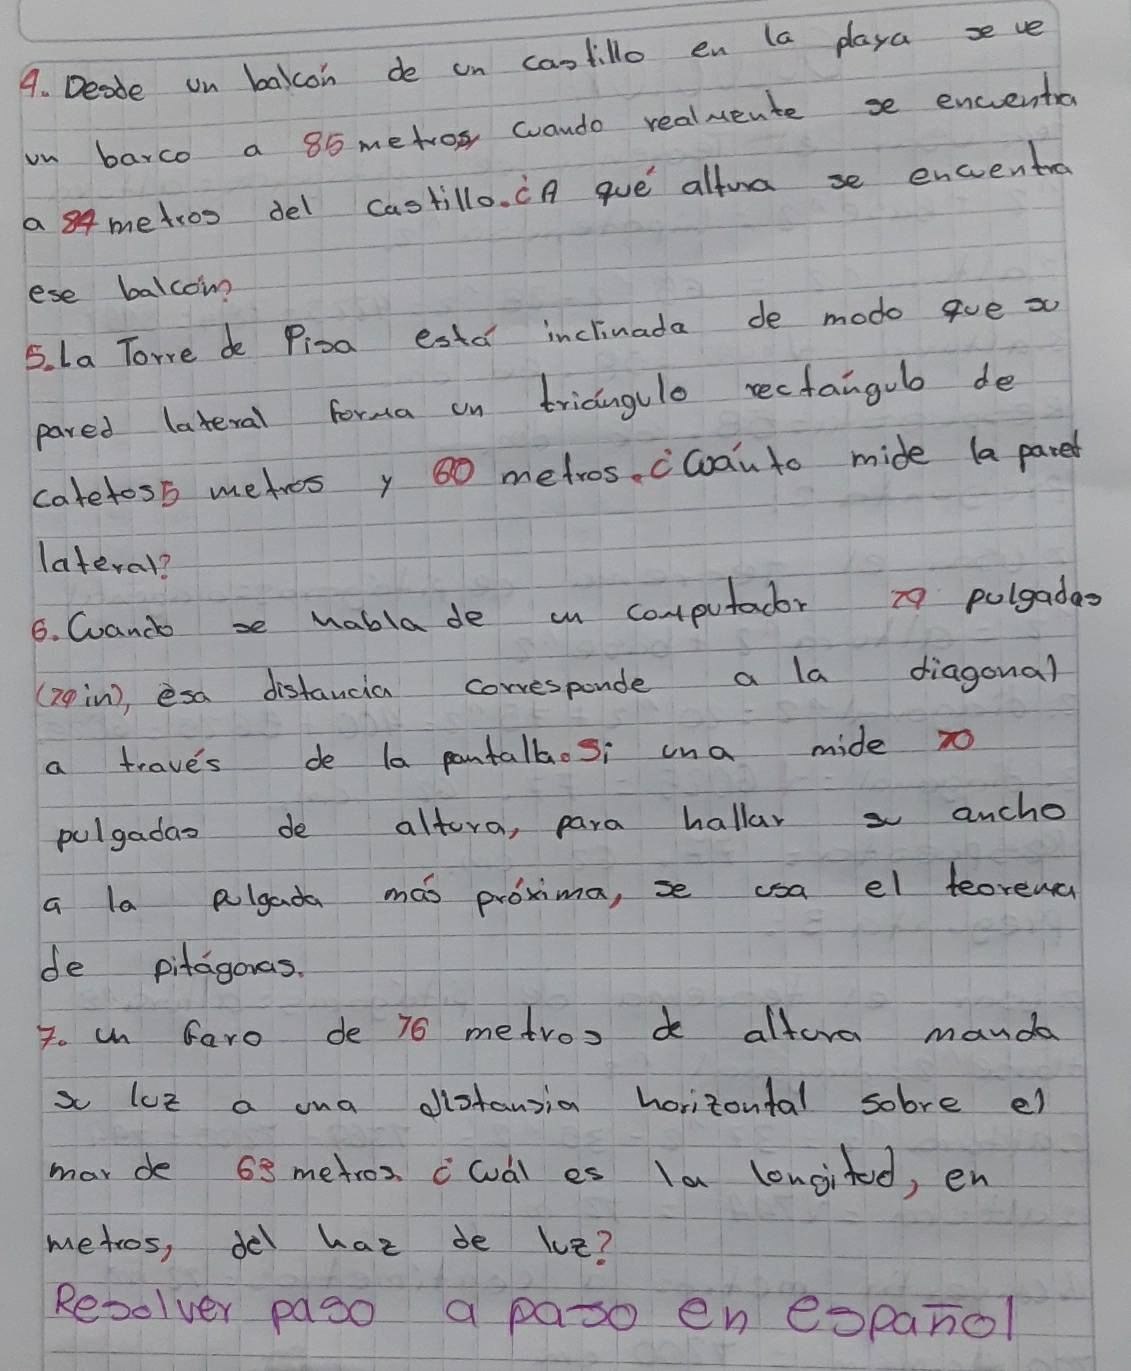 4. Desde un balcón de un castillo en la playa se ve
un barco a 85 metros cuando realmente se encuentra
a 84 metros del castillo. ¿A qué altura se encuentra
ese balcón?
5. La Torre de Pisa está inclinada de modo que su
pared lateral forma un triángulo rectángulo de
catetos 5 metros y 60 metros. ¿Cuánto mide la pared
lateral?
6. Cuando se habla de un computador 29 pulgadas
(29 in), ésa distancia corresponde a la diagonal
a través de la pantalla. Si una mide 20
pulgadas de altura, para hallar su ancho
a la pulgada más próxima, se usa el teorema
de pitágoras.
7. un faro de 16 metros de altura manda
su luz a una distansia horizontal sobre el
mar de 63 metros ¿cuál es la longitud, en
metros, del haz de luz?
Resolver paso a paso en español